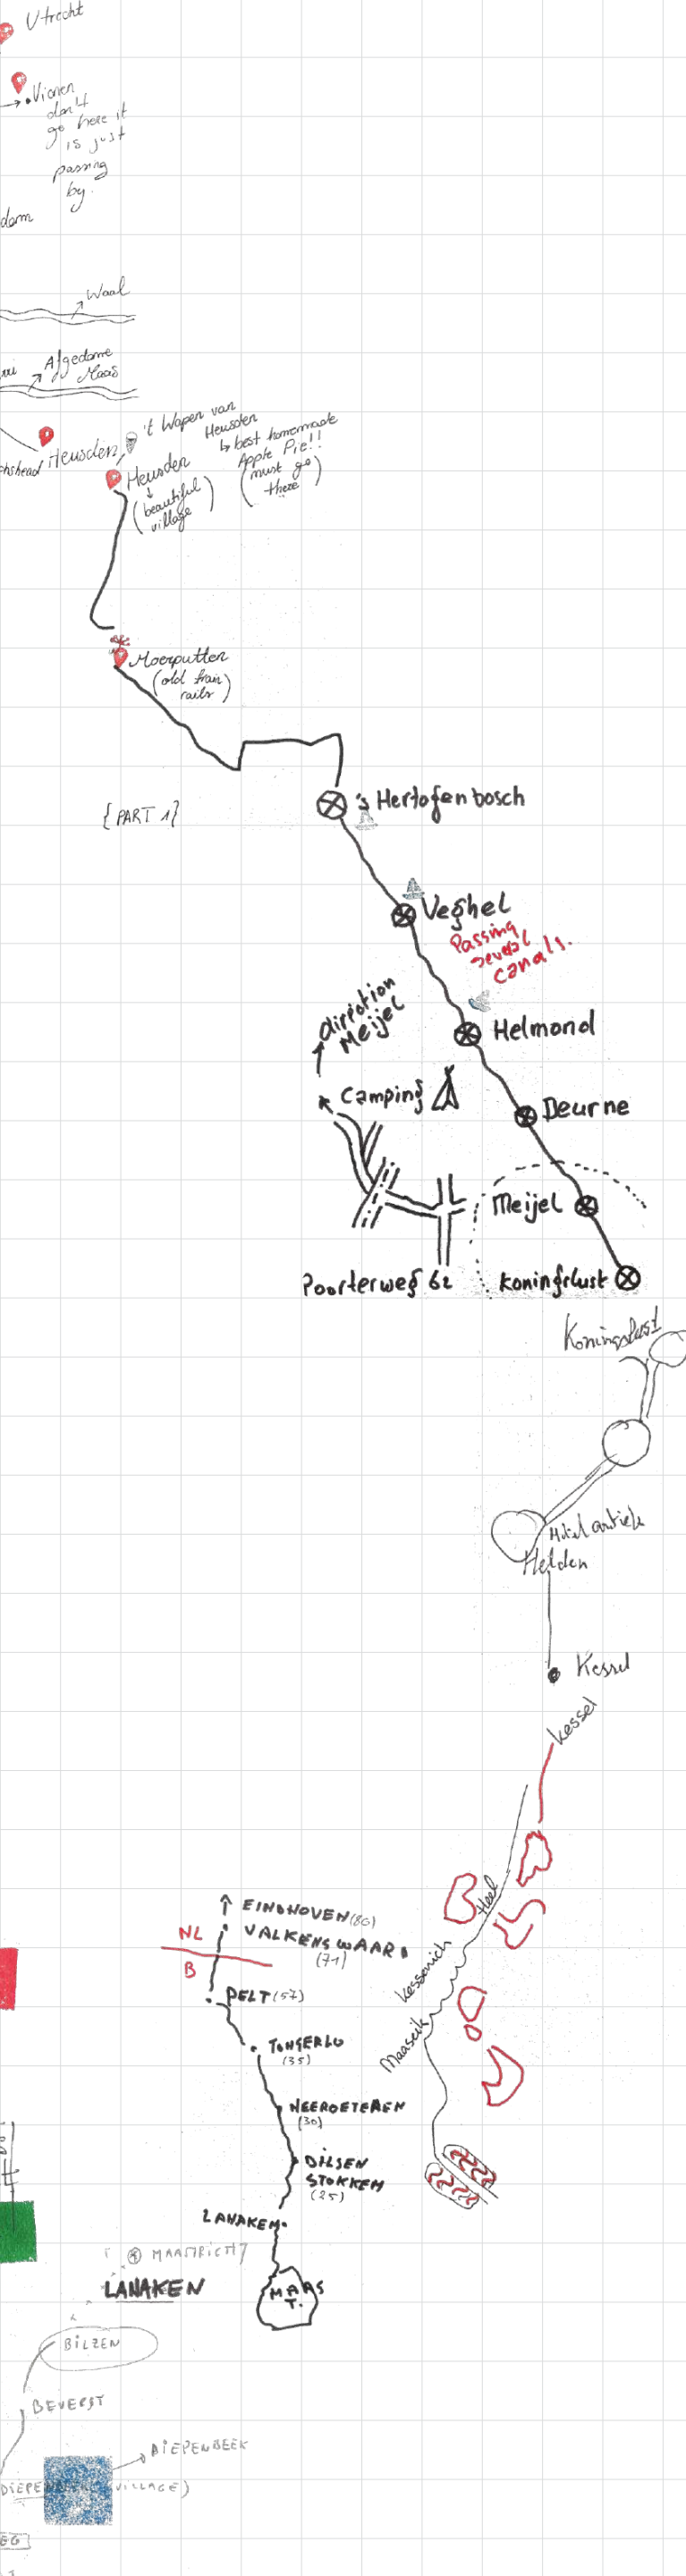 Utrecht
Vianen
don't
go here it
is just
passing
by.
dam
Waal
Afgedame
Maas
't Wapen van
Heusden
↳ best homemade
Apple Pie!!
(must go
there)
Heusden
chshead
Heusden
(beautiful
village)
Moerputten
(old train
rails)
{PART 1}
's Hertogenbosch
Veghel
Passing
several
canals.
Helmond
dirrotion
Meijel
Camping
Deurne
Meijel
Poorterweg 62
koningslust
Koningslust
Helden
Kessel
Kessel
Heel
Kessenich
Maaseik
EINDHOVEN (86)
NL
VALKENSWAARD
(71)
B
PELT (57)
TONGERLO
(35)
NEEROETEREN
(30)
DILSEN
STOKKEM
(25)
LANAKEN
MAASTRICHT
LANAKEN
MAAS
T.
BILZEN
BEVERST
DIEPENBEEK
DIEPE
(VILLAGE)
EG